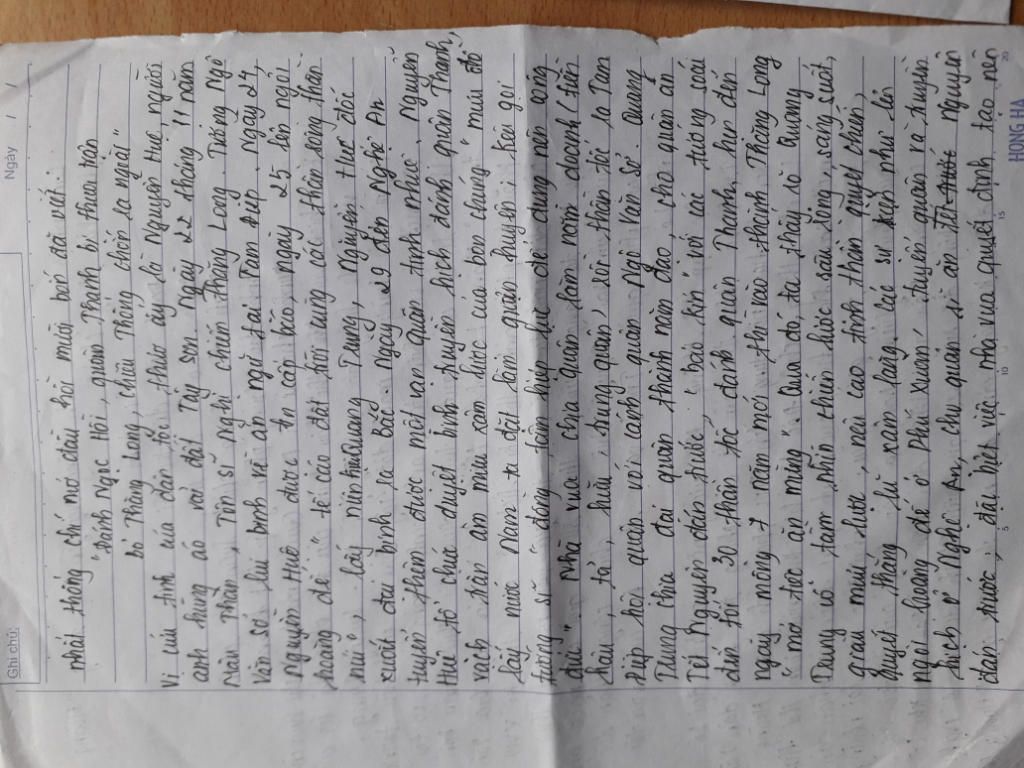 Ghi chú:
Ngày / /
nhất thống chí mở đầu hồi mười bốn đã viết:
"Đánh Ngọc Hồi, quân Thanh bị thua trận
bỏ Thăng Long, Chiêu Thống chốn ra ngoài"
Vị cứu tinh của dân tộc thưở ấy là Nguyễn Huệ, người
anh hùng áo vải đất Tây Sơn. Ngày 22 tháng 11 năm
Mậu Thân, Tôn Sĩ Nghị chiếm Thăng Long. Tướng Ngô
Văn Sở lui binh về án ngữ tại Tam Điệp. Ngày 24,
Nguyễn Huệ được tin cấp báo, ngày 25 lên ngôi
hoàng đế "tế cáo đất trời cùng các thần sông thần
núi", lấy niên hiệu Quang Trung, Nguyễn tức đốc
xuất đại binh ra Bắc. Ngày 29 đến Nghệ An
tuyển thêm được một vạn quân tinh nhuệ. Nguyễn
Huệ tổ chức duyệt binh, truyền hịch đánh quân Thanh,
vạch trần âm mưu xâm lược của bọn chúng "mưu đồ
lấy nước Nam ta đặt làm quận huyện", kêu gọi
tướng sĩ "đồng tâm hiệp lực để dựng nên công
lớn". Nhà vua chia quân làm năm doanh (tiền
hậu, tả, hữu, trung quân), sai thần tốc ra Tam
Điệp hội quân với cánh quân Ngô Văn Sở. Quang
Trung chia đại quân thành năm đạo, cho quân ăn
Tết Nguyên đán trước, "bảo kín" với các tướng soái
đến tối 30 thần tốc đánh quân Thanh, hẹn đến
ngày mồng 7 năm mới thì vào thành Thăng Long
"mở tiệc ăn mừng". Qua đó, ta thấy rõ Quang
Trung có tầm nhìn chiến lược sâu rộng, sáng suốt,
giàu mưu lược, nêu cao tinh thần quyết chiến,
quyết thắng lũ xâm lăng. Các sự kiện như: lên
ngôi hoàng đế ở Phú Xuân, tuyển quân và truyền
hịch ở Nghệ An, cho quân sĩ ăn Tết Nguyên
đán trước, đặc biệt việc nhà vua quyết định tạo nên
5 10 15 20
HONG HA